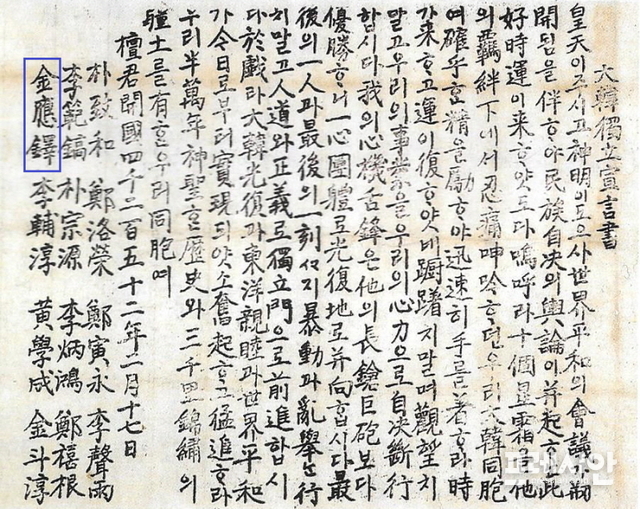 大韓獨立宣言書
皇天이주시고神明이도으사世界平和의會議가刱
開됨을伴ᄒᆞ야民族自決의輿論이幷起ᄒᆞᄂᆞᆫ此
好時運이來ᄒᆞ얏도다嗚呼라十個星霜을他
의羈絆下에서忍痛呻吟ᄒᆞ던우리大韓同胞
여確乎ᄒᆞᆫ精을勵ᄒᆞ야迅速히手를着ᄒᆞ라時
가來ᄒᆞ고運이復ᄒᆞ얏네躕躇치말며觀望치
말고우리의事業을우리의心力으로自決斷行
합시다我의心機舌鋒은他의長鎗巨砲보다
優勝ᄒᆞ니一心團體로光復地로幷向합시다最
後의一人과最後의一刻ᄭᅡ지暴動과亂擧ᄂᆞᆫ行
치말고人道와正義로獨立門으로前進합시
다於戱라大韓光復과東洋親睦과世界平和
가今日로부터實現되얏소奮起ᄒᆞ고猛進ᄒᆞ라
우리半萬年神聖ᄒᆞᆫ歷史와三千里錦繡의
疆土를有ᄒᆞᆫ우리同胞여
檀君開國四千二百五十二年二月十七日
朴致和 鄭洛榮 鄭寅永 李聲雨
李範鎬 朴宗源 李炳鴻 鄭禧根
金應鐸 李輔淳 黃學成 金斗淳
프레시안